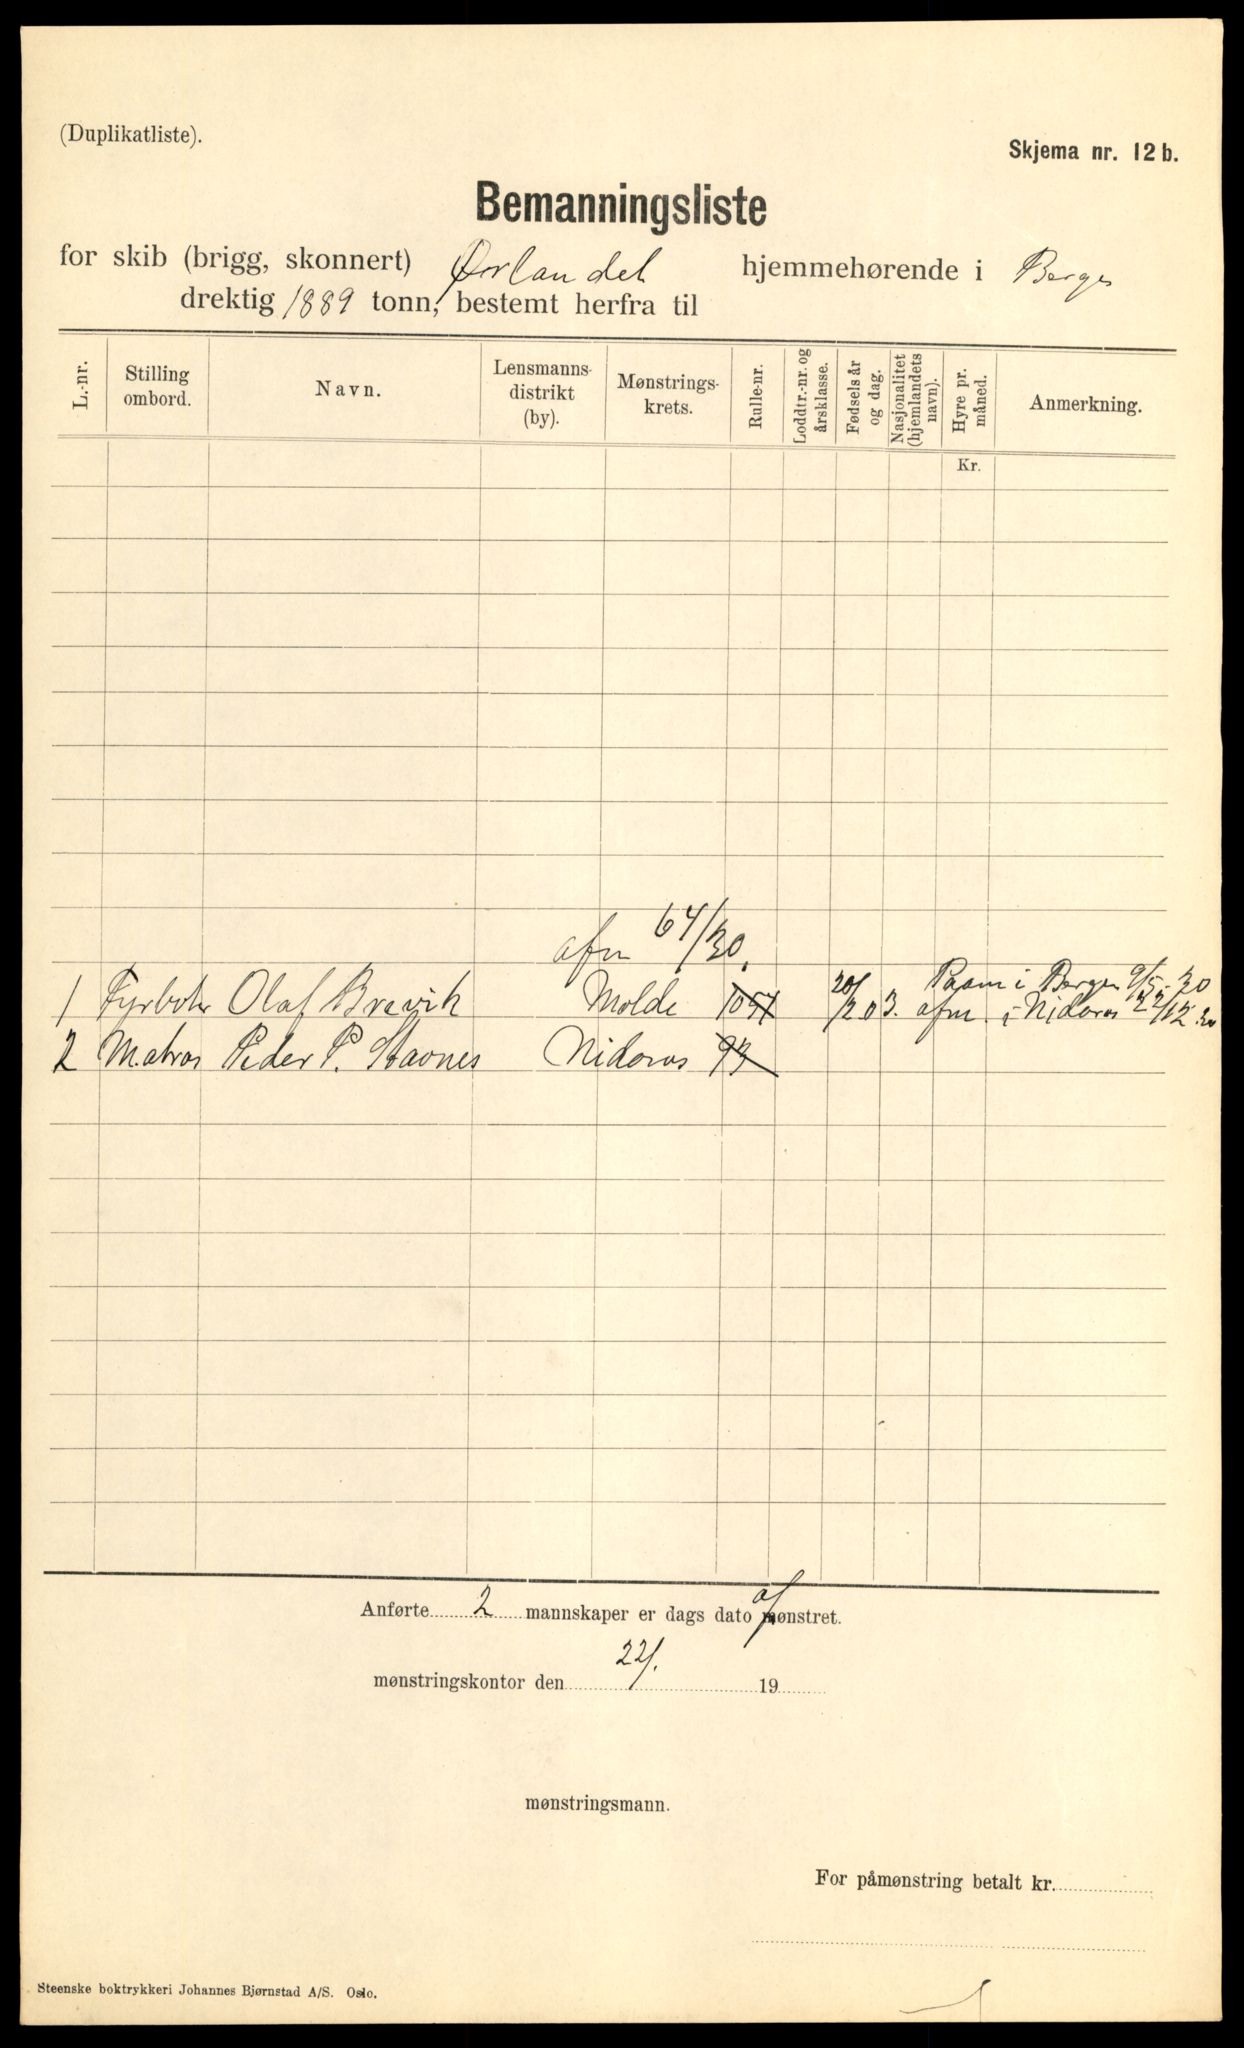 (Duplikatliste).
Skjema nr. 12 b.
Bemanningsliste
for skib (brigg, skonnert) Ørlandet hjemmehørende i Bergen
drektig 1889 tonn, bestemt herfra til
L.-nr. Stilling ombord. Navn. Lensmannsdistrikt (by). Mønstringskrets. Rulle-nr. Loddtr.-nr. og årsklasse. Fødselsår og dag. Nasjonalitet (hjemlandets navn). Hyre pr. måned. Anmerkning.
Kr.
afm 64/30.
1 Fyrbøter Olaf Brevik Molde 1051 20/12 03. Paam i Bergen 9/5-30
afm. i Nidaros 22/12.30
2 Matros Peder P. Stavnes Nidaros 93
Anførte 2 mannskaper er dags dato afmønstret.
mønstringskontor den 22/. 19
mønstringsmann.
For påmønstring betalt kr.
Steenske boktrykkeri Johannes Bjørnstad A/S. Oslo.